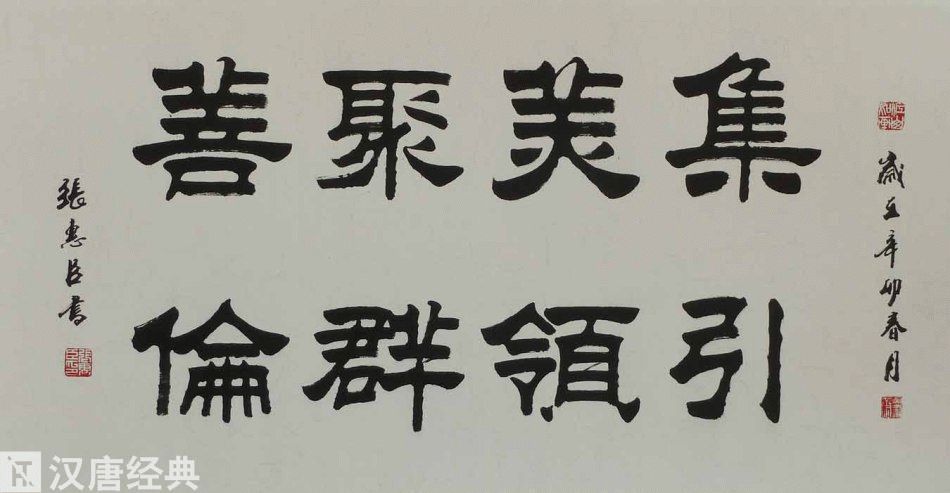 歲在辛卯春月
集美聚善
引領群倫
張惠臣書
汉唐经典